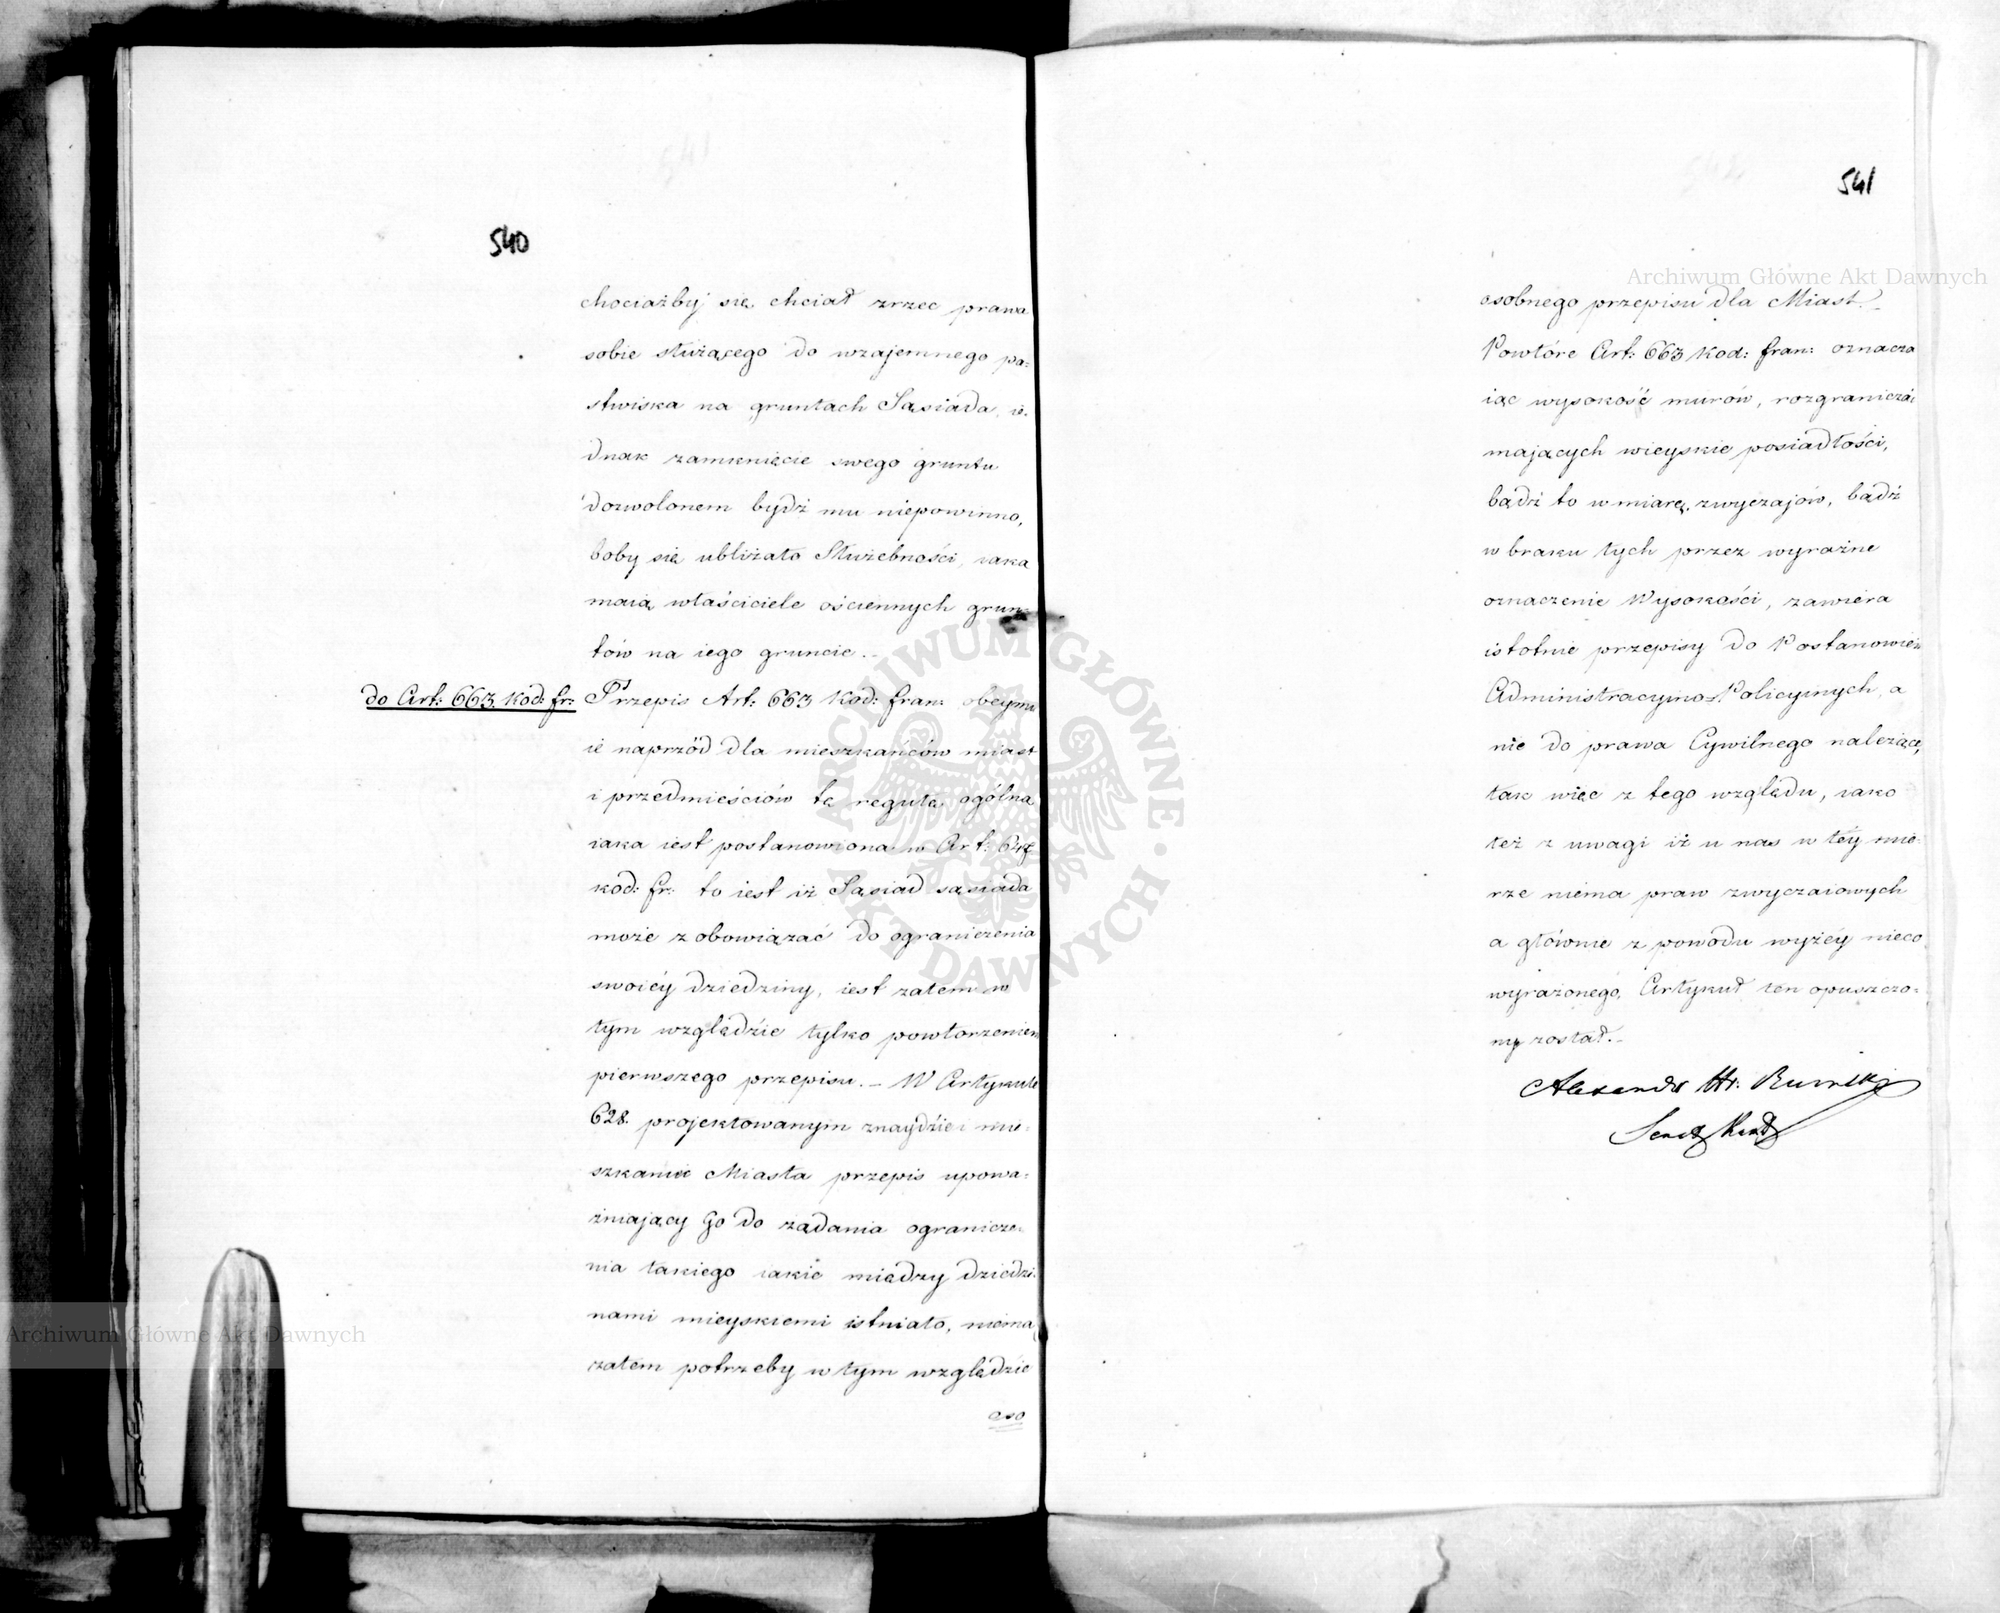 540
chociażby się chciał zrzec prawa
sobie służącego do wzajemnego pa-
stwiska na gruntach Sąsiada, ie-
dnak zamknięcie swego gruntu
dozwolonem bydź mu niepowinno,
boby się ubliżało Służebności, iaką
maią właściciele ościennych grun-
tów na iego gruncie._
do Art: 663. Kod: fr:
Przepis Art: 663 Kod: fran: obeymu
ie naprzód dla mieszkańców miast
i przedmieściów tę regułę ogólną
iaka iest postanowiona w Art:
kod: fr: to iest iż Sąsiad sąsiada
może zobowiązać do ograniczenia
swoiéy dziedziny, iest zatem w
tym względzie tylko powtorzeniem
pierwszego przepisu._ W Artykule
628. projektowanym znaydzie mie-
szkaniec Miasta przepis upowa-
żniający Go do żądania ogranicze-
nia takiego iakie między dziedzi-
nami mieyskiemi istniało, niema
zatem potrzeby w tym względzie
oso
541
osobnego przepisu dla Miast._
Powtóre Art: 663 Kod: fran: oznacza
iąc wysokość murów, rozgranicza-
mających wieyskie posiadłości,
bądź to w miarę zwyczajów, bądź
w braku tych przez wyraźne
oznaczenie Wysokości, zawiera
istotnie przepisy do Postanowień
Administracyino-Policyinych, a
nie do prawa Cywilnego należące,
tak więc z tego względu, iako
też z uwagi iż u nas w téy mie-
rze niema praw zwyczaiowych
a głównie z powodu wyżéy nieco
wyrażonego, Artykuł ten opuszczo-
ny został._
Alexander
Archiwum Główne Akt Dawnych
Archiwum Główne Akt Dawnych
ARCHIWUM GŁÓWNE · AKT DAWNYCH ·